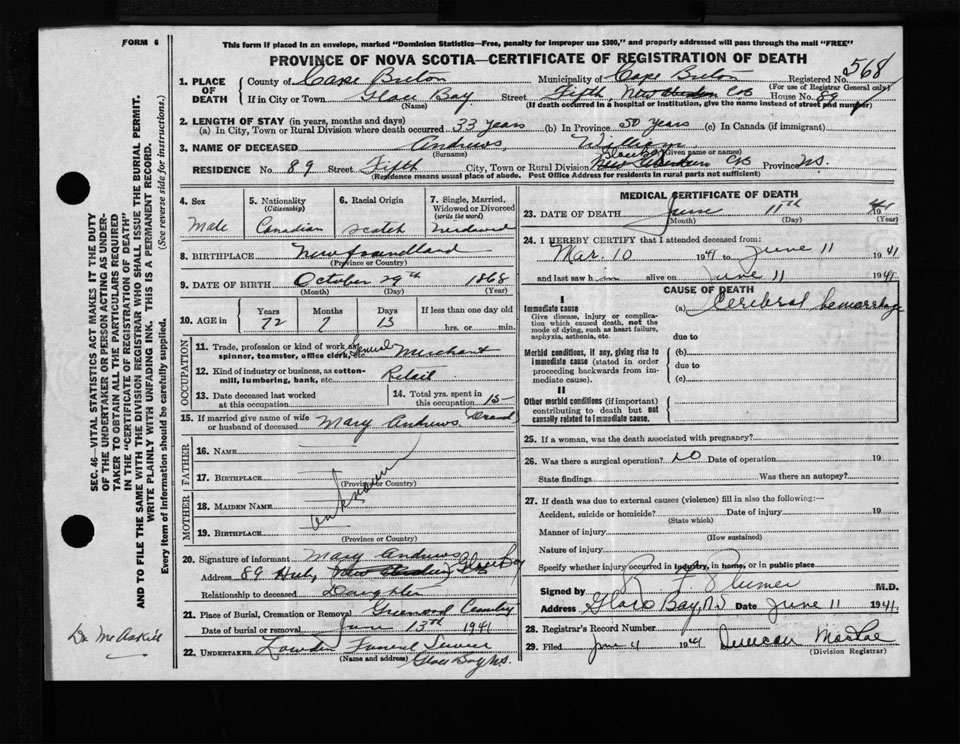 FORM 6
This form if placed in an envelope, marked "Dominion Statistics—Free, penalty for improper use $300," and properly addressed will pass through the mail "FREE"
PROVINCE OF NOVA SCOTIA—CERTIFICATE OF REGISTRATION OF DEATH
1. PLACE OF DEATH
County of Cape Breton Municipality of Cape Breton Registered No. 568
(For use of Registrar General only)
If in City or Town Glace Bay Street Fifth, New Aberdeen CB House No. 89
(Name) (If death occurred in a hospital or institution, give the name instead of street and number)
2. LENGTH OF STAY (in years, months and days)
(a) In City, Town or Rural Division where death occurred 33 years (b) In Province 50 years (c) In Canada (if immigrant)
3. NAME OF DECEASED Andrews, William
(Surname) (Given name or names)
RESIDENCE No. 89 Street Fifth City, Town or Rural Division Glace Bay New Aberdeen CB Province N.S.
(Residence means usual place of abode. Post Office Address for residents in rural parts not sufficient)
4. Sex
Male
5. Nationality (Citizenship)
Canadian
6. Racial Origin
Scotch
7. Single, Married, Widowed or Divorced (write the word)
8. BIRTHPLACE Newfoundland
(Province or Country)
9. DATE OF BIRTH October 29th 1868
(Month) (Day) (Year)
10. AGE in Years 72 Months 7 Days 13 If less than one day old hrs. or min.
OCCUPATION
11. Trade, profession or kind of work as spinner, teamster, office clerk, etc. Merchant
12. Kind of industry or business, as cotton-mill, lumbering, bank, etc. Retail
13. Date deceased last worked at this occupation
14. Total yrs. spent in this occupation 15
15. If married give name of wife or husband of deceased Mary Andrews
FATHER
16. NAME
17. BIRTHPLACE
(Province or Country)
unknown
MOTHER
18. MAIDEN NAME
19. BIRTHPLACE
(Province or Country)
20. Signature of informant Mary Andrews
Address 89 Glace Bay
Relationship to deceased Daughter
21. Place of Burial, Cremation or Removal Greenwood Cemetery
Date of burial or removal June 13th 1941
22. UNDERTAKER Funeral Service
(Name and address) Glace Bay N.S.
MEDICAL CERTIFICATE OF DEATH
23. DATE OF DEATH June 11th 1941
(Month) (Day) (Year)
24. I HEREBY CERTIFY that I attended deceased from:
Mar. 10 1941 to June 11 1941
and last saw him alive on June 11 1941.
CAUSE OF DEATH
I
Immediate cause (a) Cerebral hemorrhage
Give disease, injury or complication which caused death, not the mode of dying, such as heart failure, asphyxia, asthenia, etc.
due to
Morbid conditions, if any, giving rise to immediate cause (stated in order proceeding backwards from immediate cause).
(b)
due to
(c)
II
Other morbid conditions (if important) contributing to death but not causally related to immediate cause.
25. If a woman, was the death associated with pregnancy?
26. Was there a surgical operation? No Date of operation 19
State findings Was there an autopsy?
27. If death was due to external causes (violence) fill in also the following:—
Accident, suicide or homicide? Date of injury 19
(State which)
Manner of injury
(How sustained)
Nature of injury
Specify whether injury occurred in industry, in home, or in public place
Signed by M.D.
Address Glace Bay, N.S. Date June 11 1941.
28. Registrar's Record Number
29. Filed 1941 Duncan MacRae
(Division Registrar)
SEC. 46—VITAL STATISTICS ACT MAKES IT THE DUTY
OF THE UNDERTAKER OR PERSON ACTING AS UNDER-
TAKER TO OBTAIN ALL THE PARTICULARS REQUIRED
IN THE "CERTIFICATE OF REGISTRATION OF DEATH"
AND TO FILE THE SAME WITH THE DIVISION REGISTRAR WHO SHALL ISSUE THE BURIAL PERMIT.
WRITE PLAINLY WITH UNFADING INK. THIS IS A PERMANENT RECORD.
Every item of information should be carefully supplied. (See reverse side for instructions.)
Dr McAskill